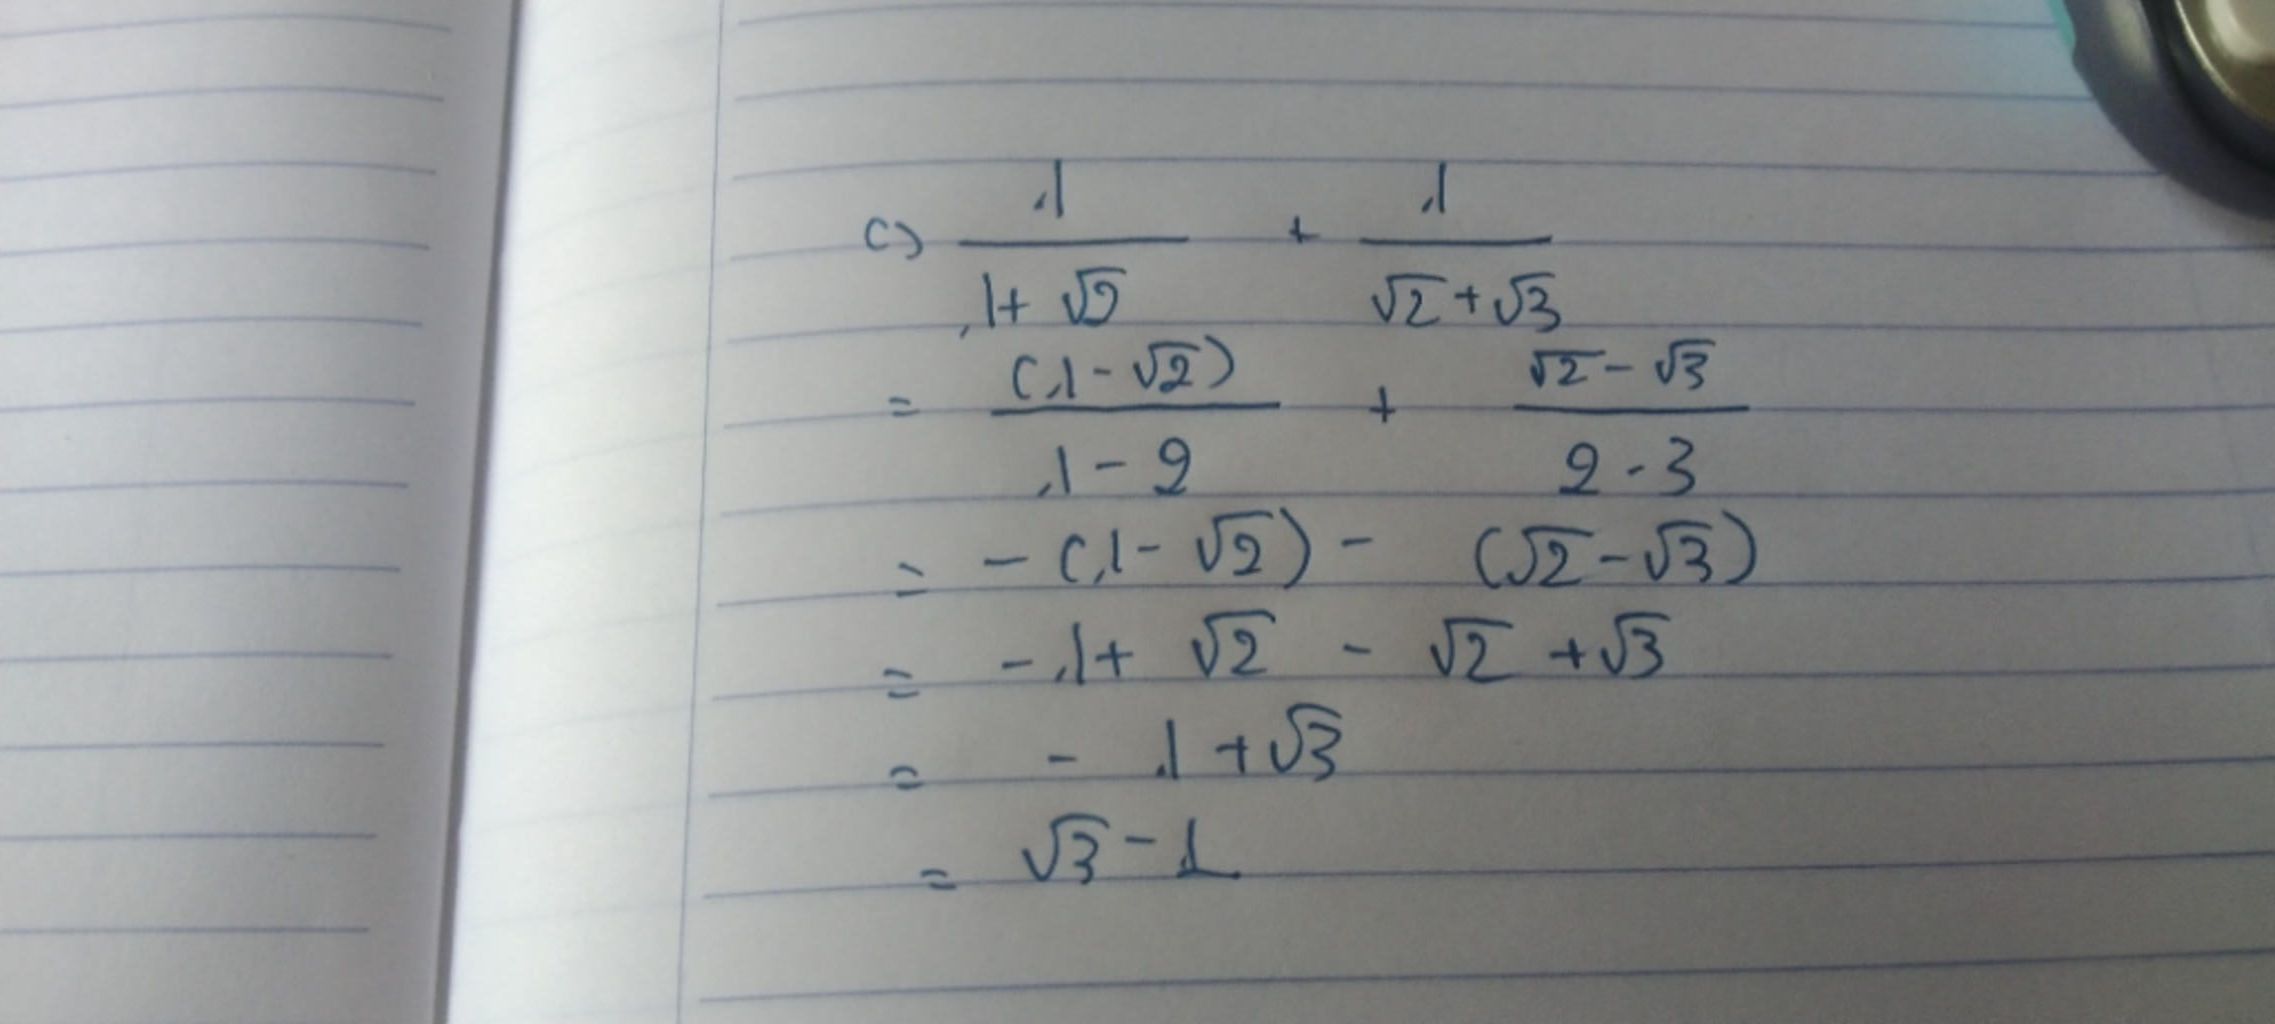 c) 1/(1+√2) + 1/(√2+√3)
= (1-√2)/(1-2) + (√2-√3)/(2-3)
= -(1-√2) - (√2-√3)
= -1+√2 - √2+√3
= -1+√3
= √3-1